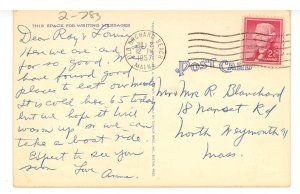 2-783
THIS SPACE FOR WRITING MESSAGES
Dear Ray & Lonnie
Here we are and
so far so good. We
have found good
places to eat our meals
It is cold here 65 today
but we hope it will
warm up, so we can
take a boat ride.
Expect to see you
soon Love Anna.
OLD ORCHARD BEACH
12 M
1957
MAINE
POST CARD
2¢
Mrs Mr R. Blanchard
18 Nanset Rd
North Weymouth 91
Mass.